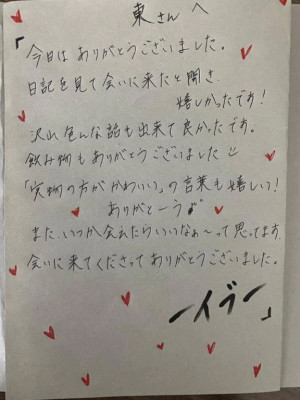 東さんへ
「今日はありがとうございました。
日記を見て会いに来たと聞き、
嬉しかったです！
沢山色んな話も出来て良かったです。
飲み物もありがとうございました
「実物の方がかわいい」の言葉も嬉しい！
ありがとーう♪
また、いつか会えたらいいなぁ〜って思ってます
会いに来てくださってありがとうございました。
ーイヴー」